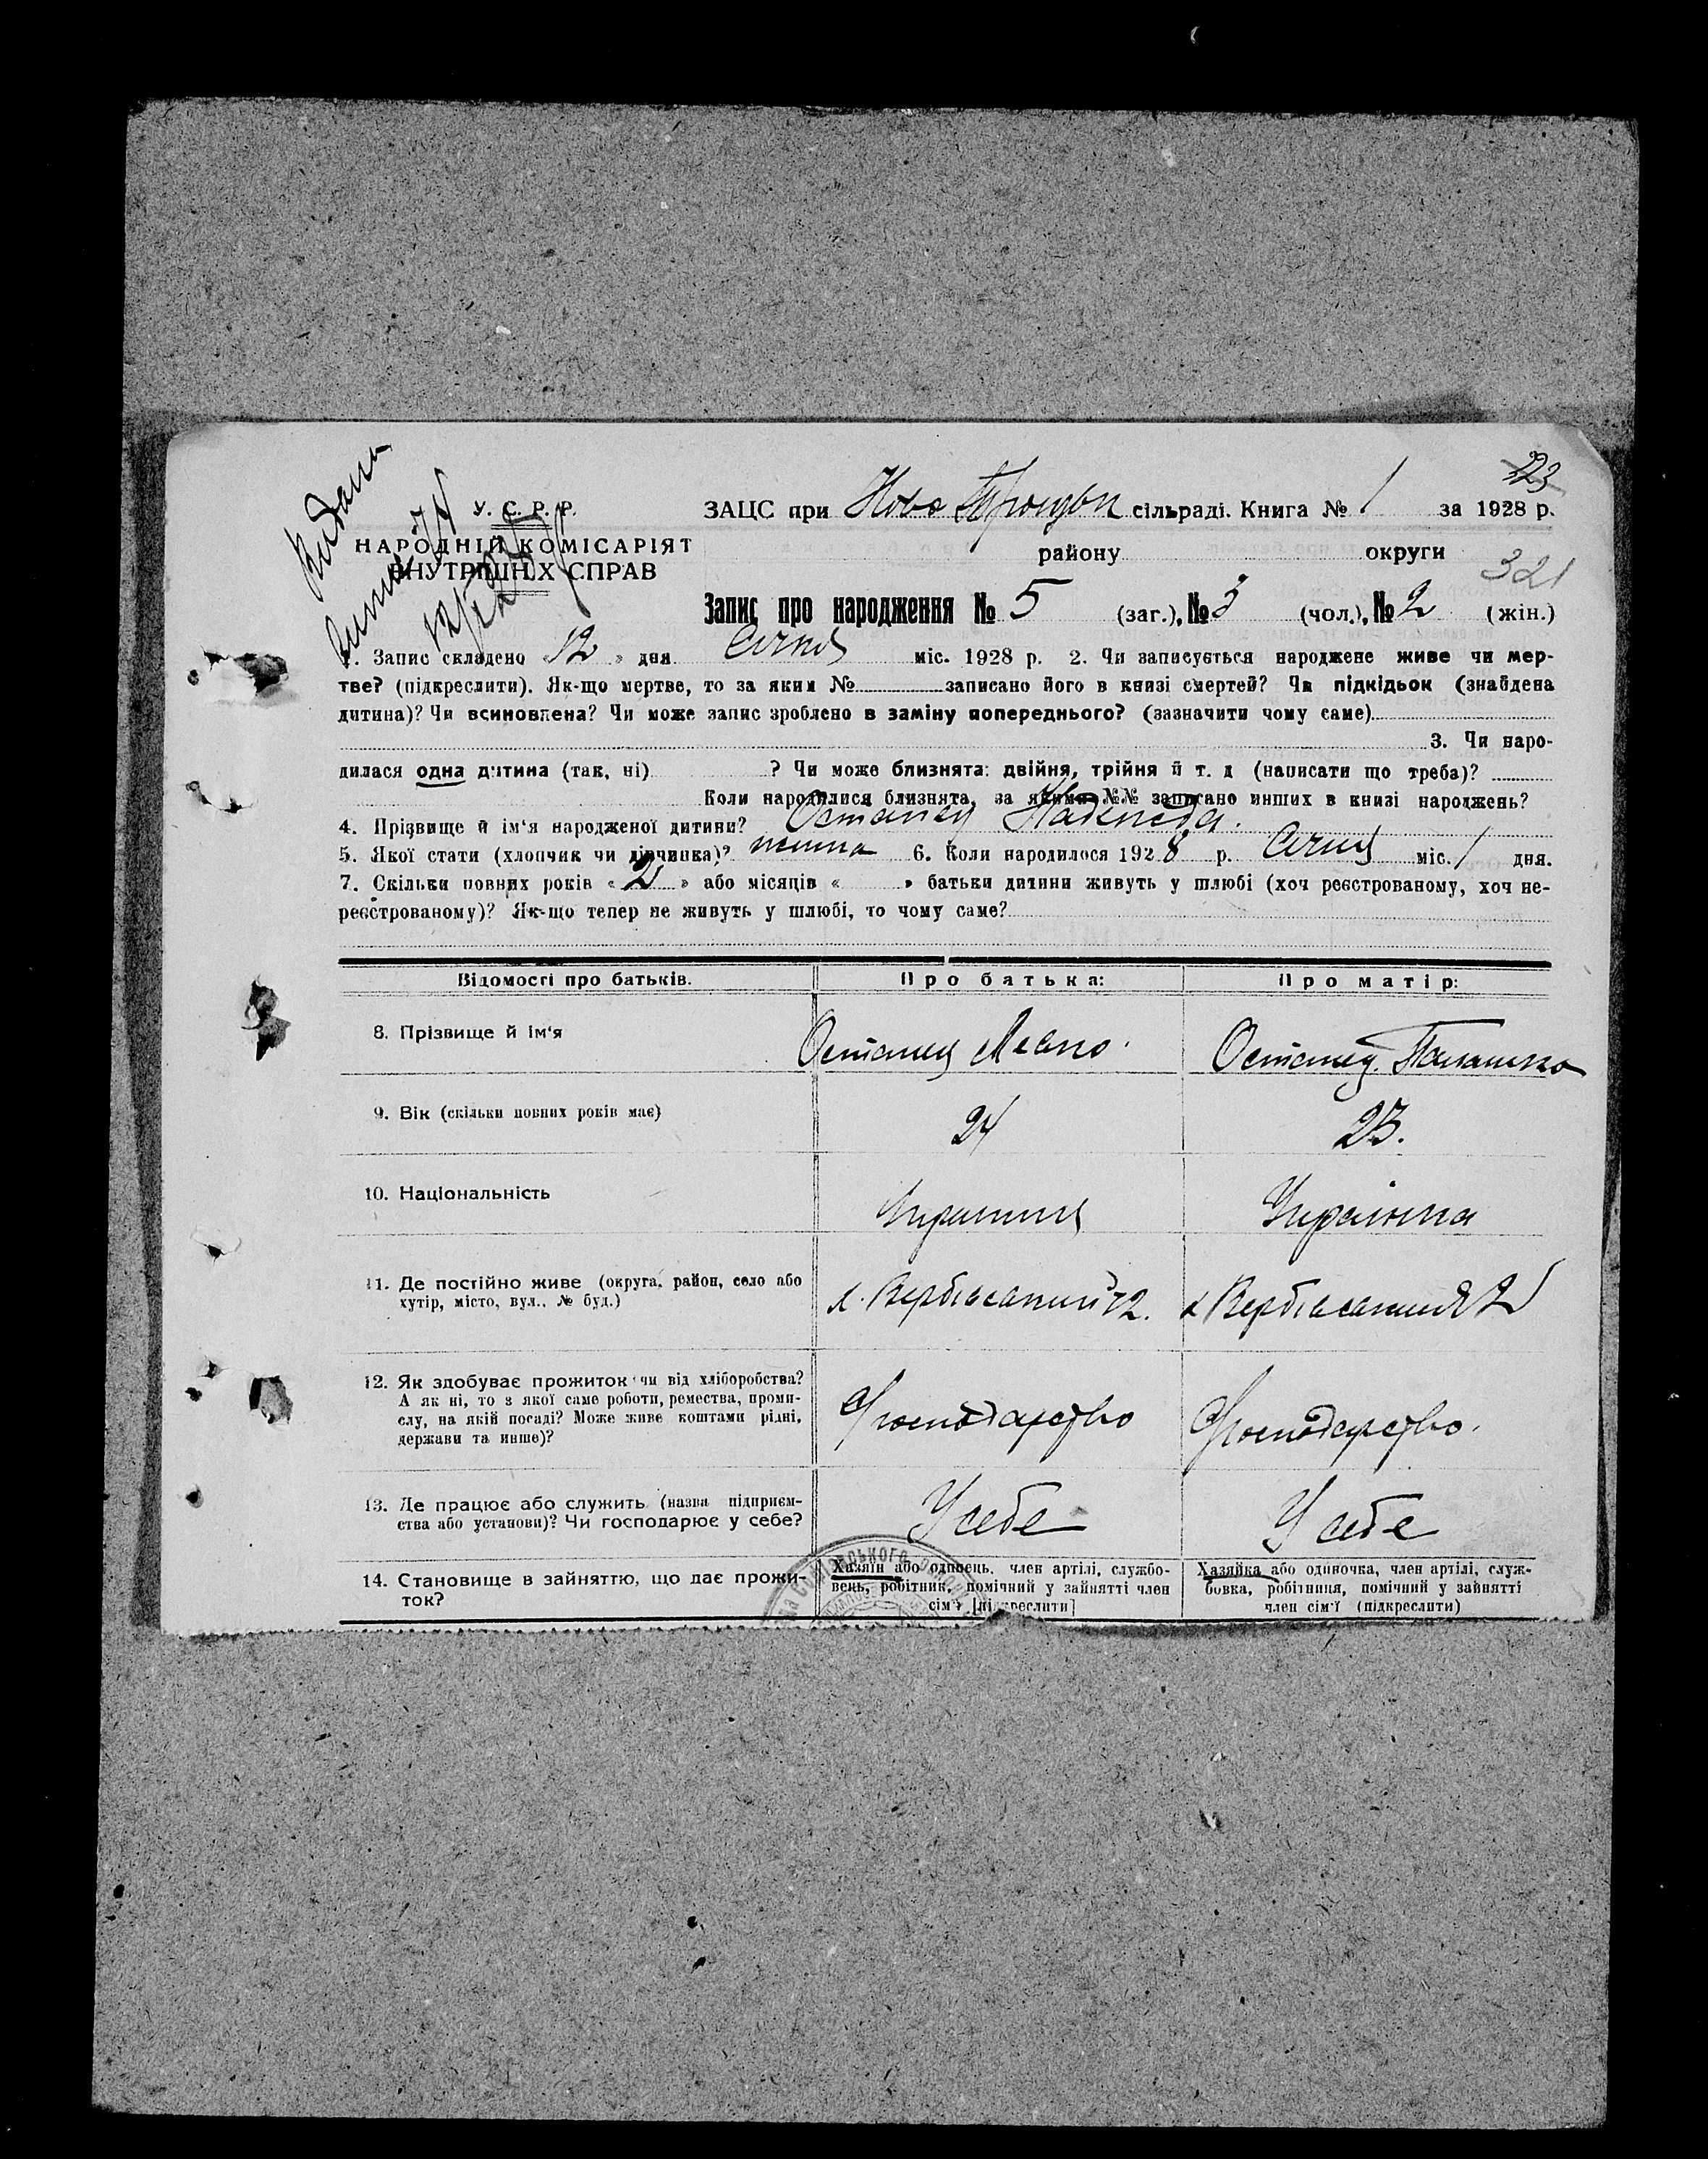 23
У. С. Р. Р.
НАРОДНІЙ КОМІСАРІЯТ
ВНУТРІШНІХ СПРАВ
Видана
ЗАЦС при Ново сільраді. Книга № 1 за 1928 р.
району округи
321
Запис про народження № 5 (заг.), № 3 (чол.), № 2 (жін.)
1. Запис складено « 12 » дня Січня міс. 1928 р. 2. Чи записується народжене живе чи мер-
тве? (підкреслити). Як-що мертве, то за яким № записано його в книзі смертей? Чи підкідьок (знайдена
дитина)? Чи всиновлена? Чи може запис зроблено в заміну попереднього? (зазначити чому саме)
3. Чи наро-
дилася одна дитина (так, ні) ? Чи може близнята: двійня, трійня й т. д (написати що треба)?
Коли народилися близнята, за якими №№ записано инших в книзі народжень?
4. Прізвище й ім'я народженої дитини? Остапец Надежда.
5. Якої стати (хлопчик чи дівчинка)? 6. Коли народилося 1928 р. Січня міс. 1 дня.
7. Скільки повних років « 2 » або місяців « » батьки дитини живуть у шлюбі (хоч реєстрованому, хоч не-
реєстрованому)? Як-що тепер не живуть у шлюбі, то чому саме?
Відомості про батьків. Про батька: Про матір:
8. Прізвище й ім'я Остапец Остапец.
9. Вік (скільки повних років має) 24 23.
10. Національність Украинец Українка
11. Де постійно живе (округа, район, село або
хутір, місто, вул., № буд.)
12. Як здобуває прожиток чи від хліборобства?
А як ні, то з якої саме роботи, ремества, проми-
слу, на якій посаді? Може живе коштами рідні,
держави та инше)?
Господарство Господарство.
13. Де працює або служить (назва підприєм-
ства або установи)? Чи господарює у себе?
У себе У себе
14. Становище в зайняттю, що дає прожи-
ток?
Хазяїн або одинець, член артілі, службо-
вець, робітник, помічний у зайнятті член
сім'ї [підкреслити]
Хазяйка або одиночка, член артілі, служ-
бовка, робітниця, помічний у зайнятті
член сім'ї (підкреслити)